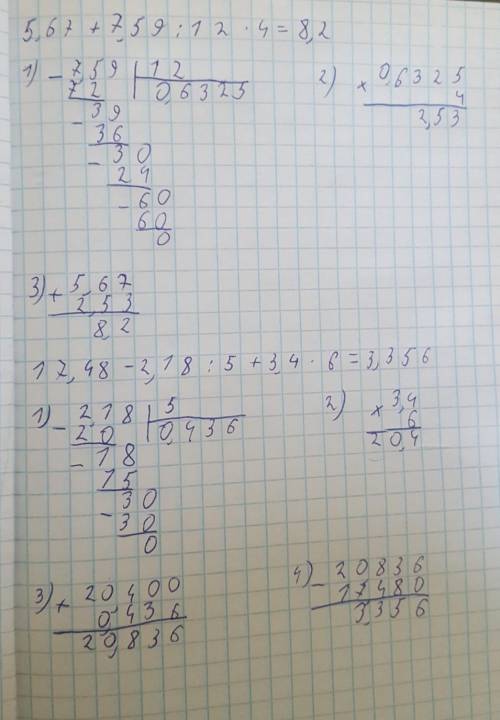 5,67 + 7,59 : 12 · 4 = 8,2
1) - 7,59 | 12
72 0,6325
- 39
36
- 30
24
- 60
60
0
2) × 0,6325
4
2,53
3) + 5,67
2,53
8,2
17,48 - 2,18 : 5 + 3,4 · 6 = 3,356
1) - 2,18 | 5
20 0,436
- 18
15
- 30
30
0
2) × 3,4
6
20,4
3) + 20,400
0,436
20,836
4) - 20836
17480
3,356